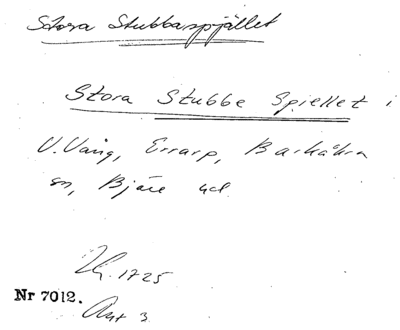 Stora Stubbaspjället
Stora Stubbe Spiellet i
V. Vång, Errarp, Barkåkra
sn, Bjäre hd
Nr 7012.
1725
Akt 3